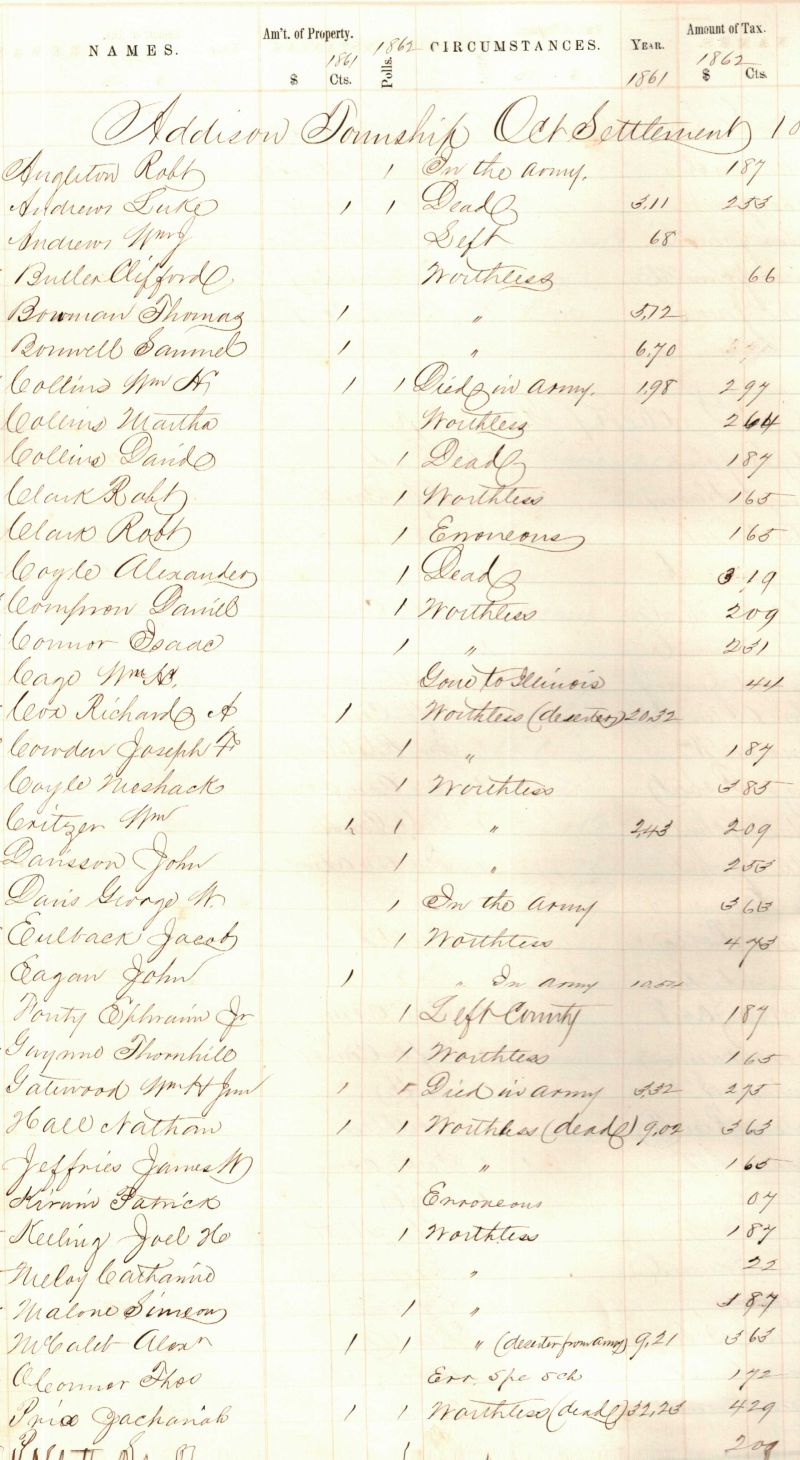 NAMES. Am't. of Property. 1861 $ Cts. 1862 Polls. CIRCUMSTANCES. YEAR. 1861 Amount of Tax. 1862 $ Cts.
Addison Township Oct Settlement
Angleton Robt 1 In the Army. 187
Andrews Luke 1 1 Dead 3,11 253
Andrews Wm J Left 68
Butler Clifford Worthless 66
Bowman Thomas 1 " 5,72
Bonwell Samuel 1 " 6,70
Collins Wm H 1 1 Died in Army. 1,98 297
Collins Martha Worthless 264
Collins David 1 Dead 187
Clark Robt 1 Worthless 165
Clark Robt 1 Erroneous 165
Coyle Alexander 1 Dead 319
Compron Daniel 1 Worthless 209
Connor Isaac 1 " 231
Cage Wm H. Gone to Illinois 44
Cox Richard A 1 Worthless (deserter) 20,32
Cowden Joseph F 1 " 187
Coyle Meshack 1 Worthless 385
Critzer Wm 1 1 " 2,43 209
Davisson John 1 " 253
Davis George W. 1 In the Army 363
Eulback Jacob 1 Worthless 473
Eagan John 1 " In Army
Fouty Ephraim Jr 1 Left County 187
Gwynne Thornhill 1 Worthless 165
Gatewood Wm H Jun 1 1 Died in Army 3,32 275
Hall Nathan 1 1 Worthless (dead) 9,02 363
Jeffries James W 1 " 165
Patrick Erroneous 07
Keeling Joel H 1 Worthless 187
Meloy Catharine " 22
Malone Simeon 1 " 187
McCaleb Alexr 1 1 " (deserter from Army) 9,21 363
OConnor Thos Err Spe Sch 172
Price Zachariah 1 1 Worthless (dead) 32,23 429
1 209